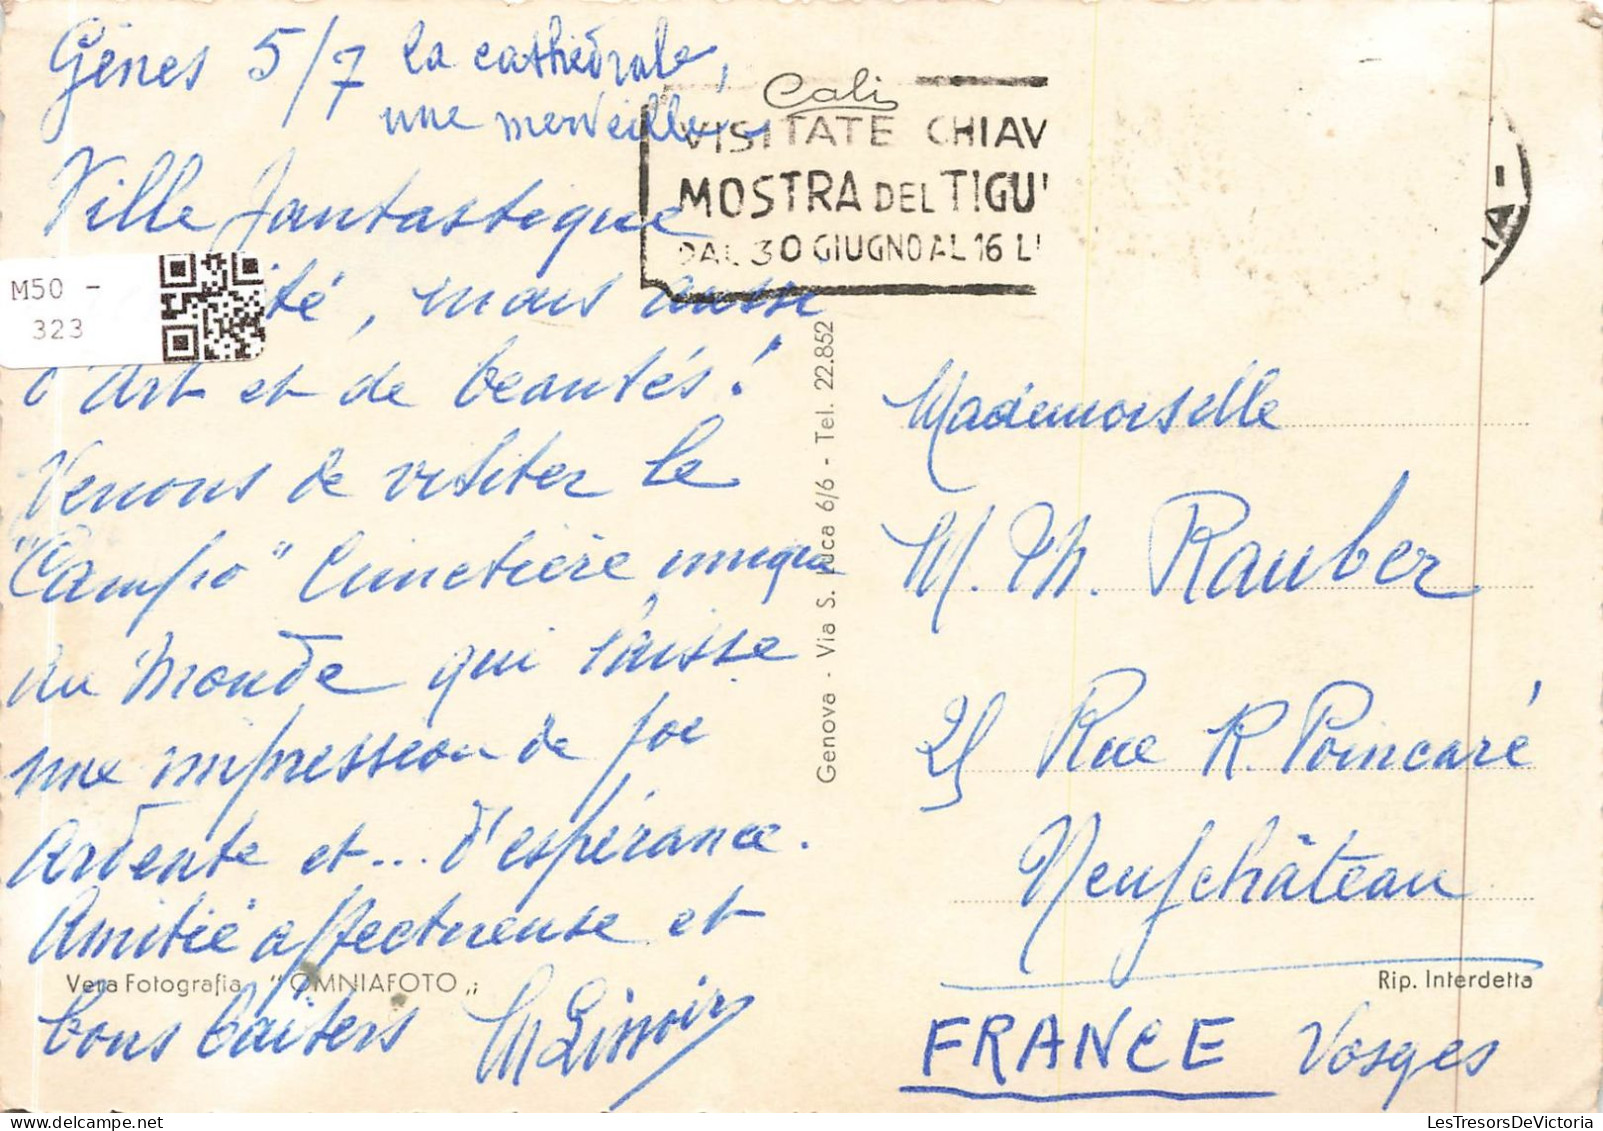 Gênes 5/7 la cathédrale,
une merveille
Ville fantastique
té, mais aussi
d'Art et de beautés!
Venons de visiter le
"Campo" Cimetière unique
du Monde qui laisse
une impression de foi
ardente et... d'espérance.
Amitié affectueuse et
bons baisers
Vera Fotografia "OMNIAFOTO"
Genova - Via S. Luca 6/6 - Tel. 22.852
Cali
VISITATE CHIAV
MOSTRA DEL TIGU'
DAL 30 GIUGNO AL 16 L
Mademoiselle
M. Th. Rauber
25 Rue R. Poincaré
Neufchâteau
Rip. Interdetta
FRANCE Vosges
M50 -
323
LesTresorsDeVictoria.com